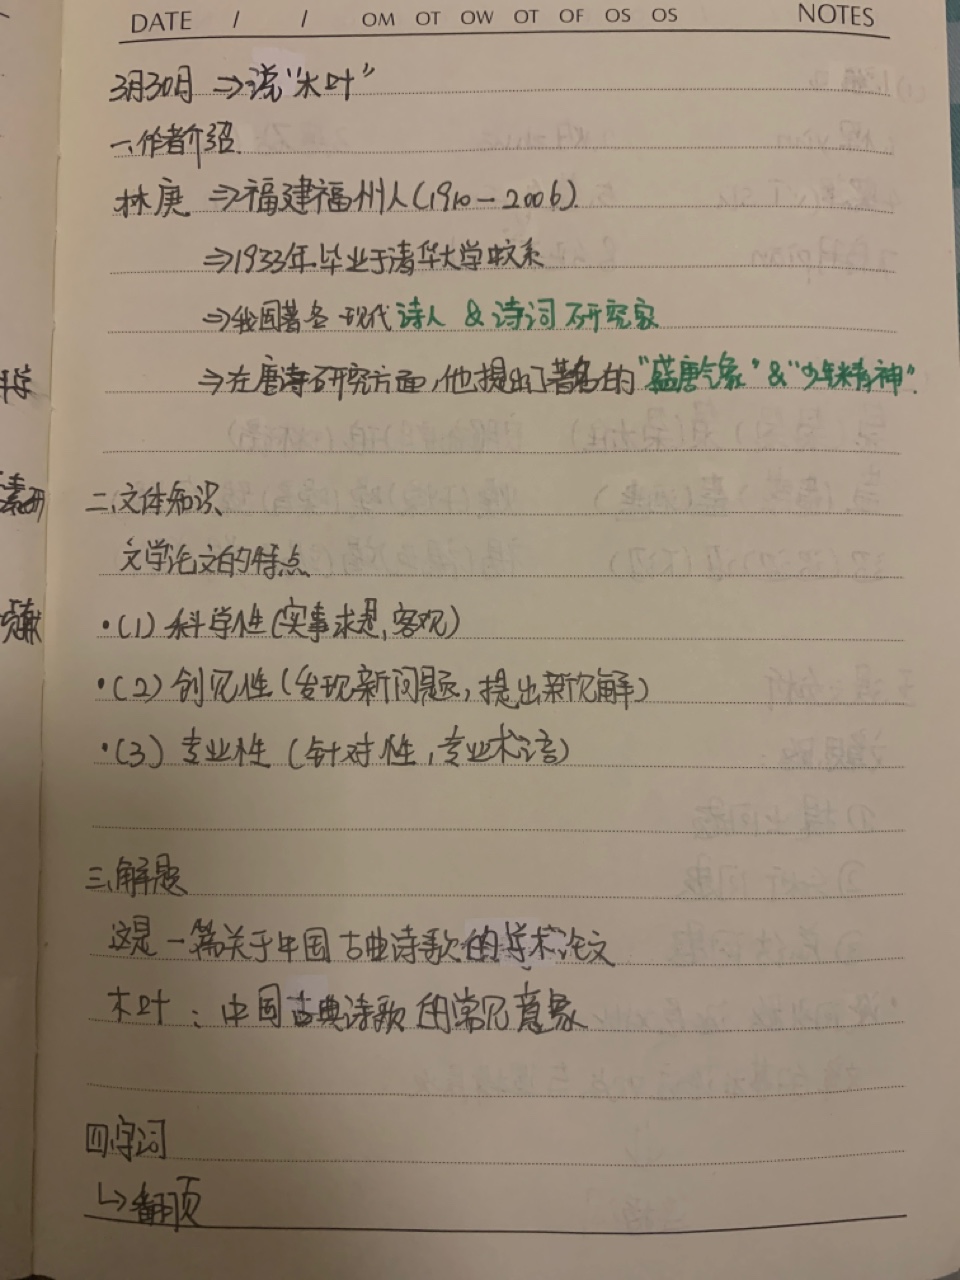 DATE / / OM OT OW OT OF OS OS NOTES
3月30日 ⇒ 说“木叶”
一、作者介绍
林庚 ⇒ 福建福州人(1910-2006)
⇒ 1933年毕业于清华大学中文系
⇒ 我国著名现代诗人 & 诗词研究家
⇒ 在唐诗研究方面,他提出了著名的“盛唐气象”&“少年精神”.
二、文体知识
文学论文的特点
·(1) 科学性(实事求是,客观)
·(2) 创见性(发现新问题,提出新见解)
·(3) 专业性(针对性,专业术语)
三、解题
这是一篇关于中国古典诗歌的学术论文
木叶:中国古典诗歌的常见意象
四、字词
↳翻页